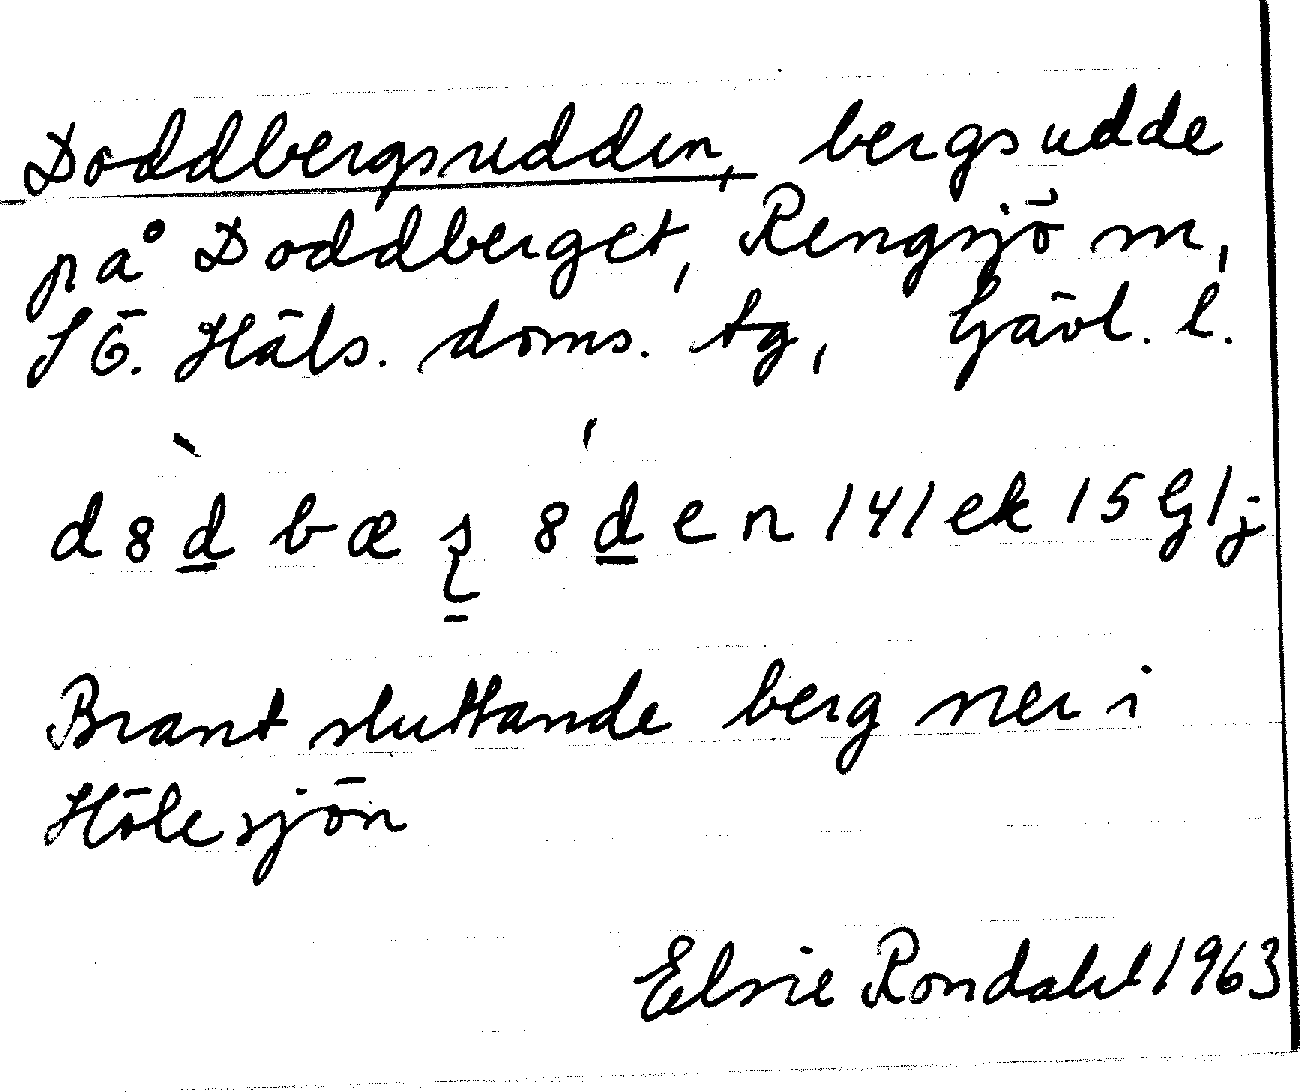 Doddbergsudden, bergsudde
på Doddberget, Rengsjö sn,
SÖ. Häls. doms. tg, Gävl. l.
d8d̲̀ bæ 8́d̲en 141ek 15G1j
Brant sluttande berg ner i
Hölesjön
Elsie Rondahl 1963